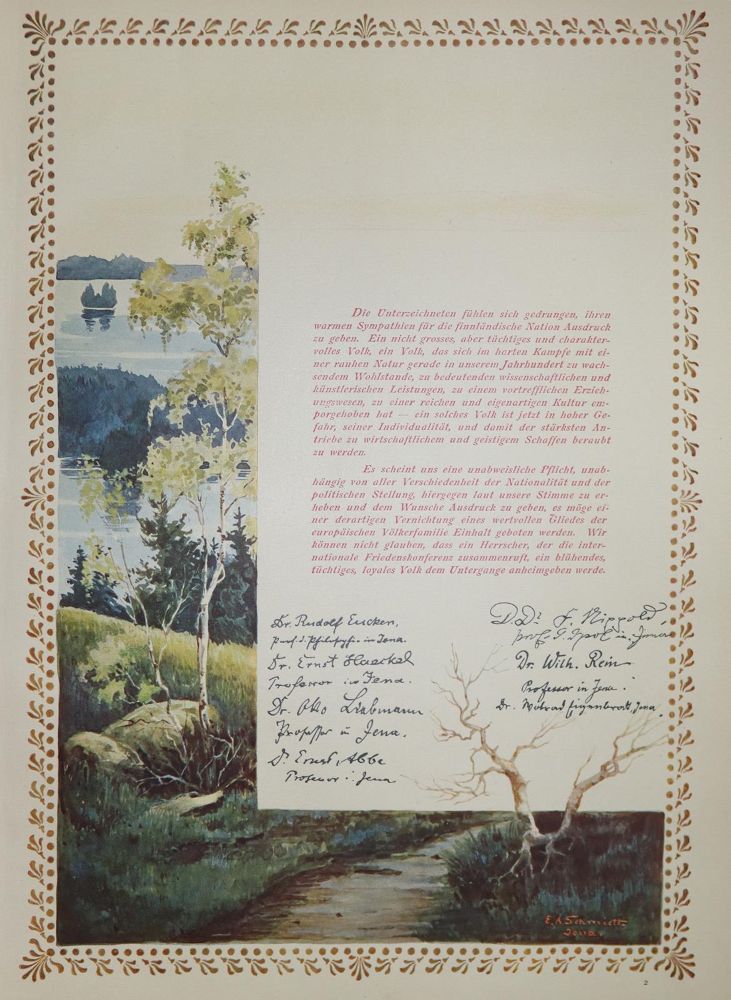 Die Unterzeichneten fühlen sich gedrungen, ihren
warmen Sympathien für die finnländische Nation Ausdruck
zu geben. Ein nicht grosses, aber tüchtiges und charakter-
volles Volk, ein Volk, das sich im harten Kampfe mit ei-
ner rauhen Natur gerade in unserem Jahrhundert zu wach-
sendem Wohlstande, zu bedeutenden wissenschaftlichen und
künstlerischen Leistungen, zu einem vortrefflichen Erzieh-
ungswesen, zu einer reichen und eigenartigen Kultur em-
porgehoben hat — ein solches Volk ist jetzt in hoher Ge-
fahr, seiner Individualität, und damit der stärksten An-
triebe zu wirtschaftlichem und geistigem Schaffen beraubt
zu werden.
Es scheint uns eine unabweisliche Pflicht, unab-
hängig von aller Verschiedenheit der Nationalität und der
politischen Stellung, hiergegen laut unsere Stimme zu er-
heben und dem Wunsche Ausdruck zu geben, es möge ei-
ner derartigen Vernichtung eines wertvollen Gliedes der
europäischen Völkerfamilie Einhalt geboten werden. Wir
können nicht glauben, dass ein Herrscher, der die inter-
nationale Friedenskonferenz zusammenruft, ein blühendes,
tüchtiges, loyales Volk dem Untergange anheimgeben werde.
Dr. Rudolf Eucken,
Prof. d. Philosophie in Jena.
Dr. Ernst Haeckel
Professor in Jena.
Dr. Otto Liebmann
Professor in Jena.
Dr. Ernst Abbe
Professor in Jena
D. Dr. F. Nippold,
prof. in Jena
Dr. Wilh. Rein
Professor in Jena.
Dr. Wolrad Eigenbrodt, Jena.
E. K. Schmidt
Jena
2